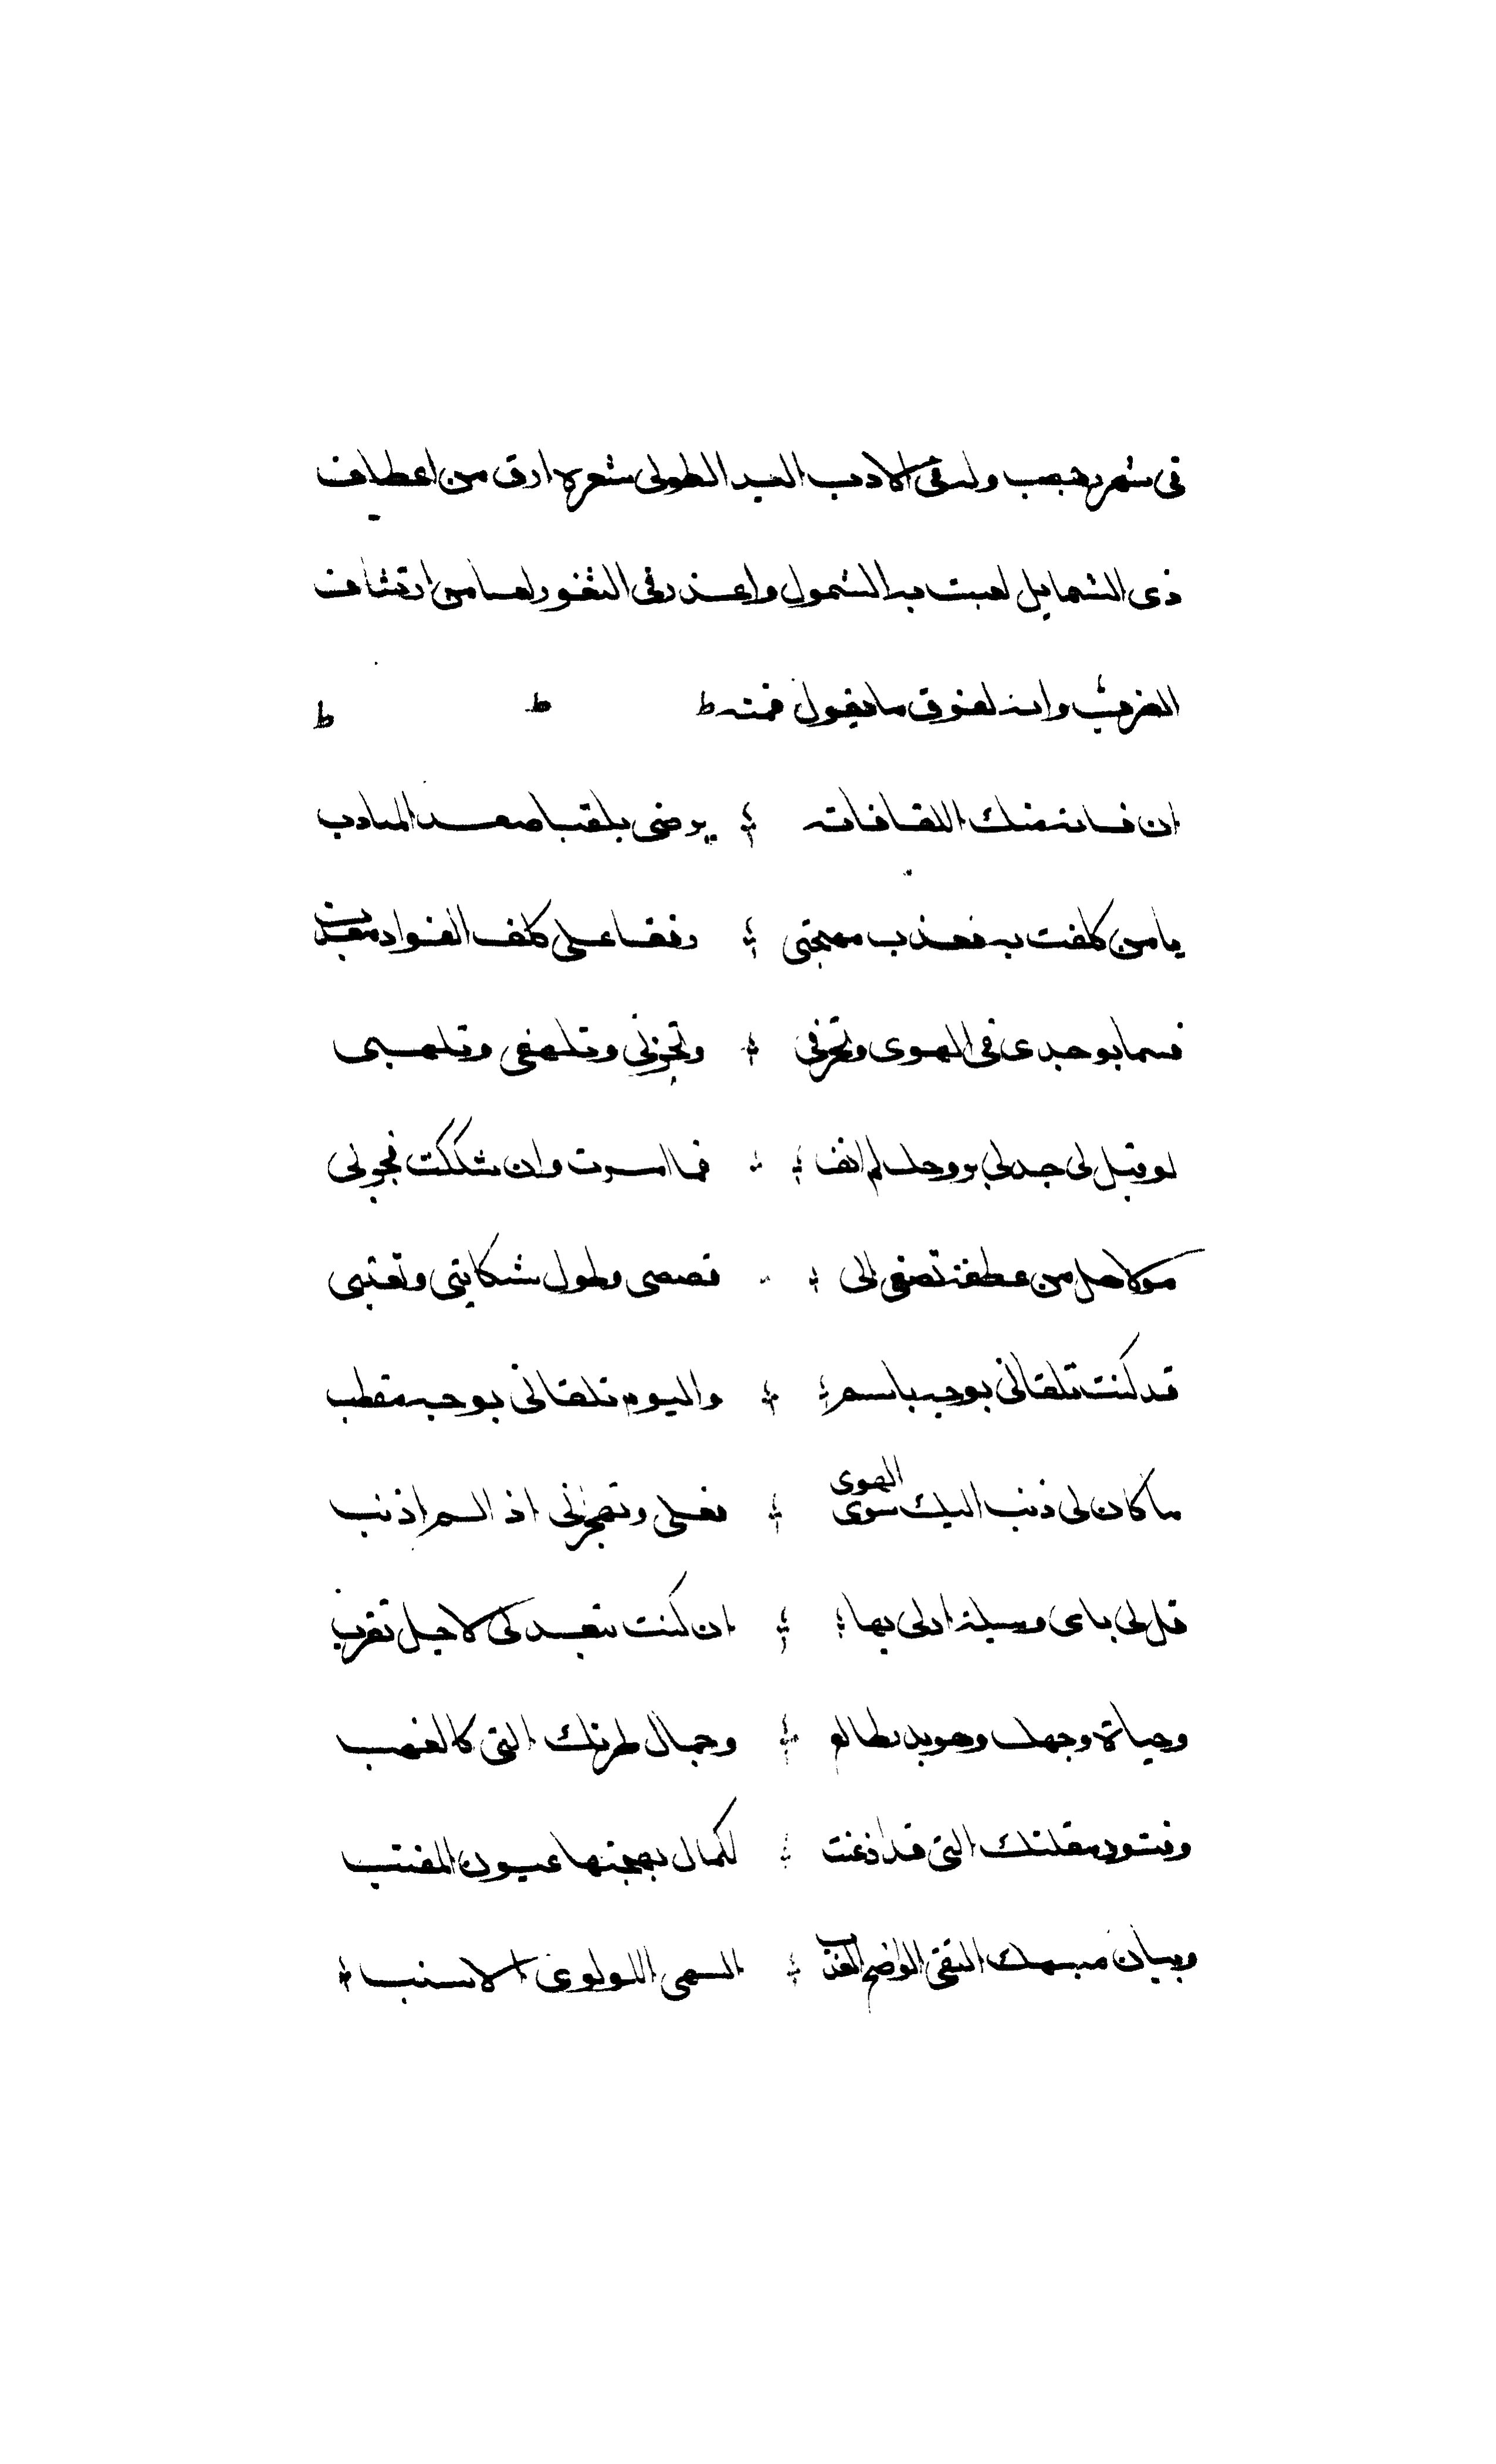 في شهر رجب وله في الادب اليد الطولى شعره ارق من اعطاف
ذى الشمايل لعبت به الشمول واعذر فى الثغور لعسا من ارتشاف
الغريب وانه لفوق ما يقول فمنه ط ط ط
ان فاتـ منك اللقا فاته يرضى بلقيا صعد
يا من كلفت به فعذب مهجتى رفقا على كلف الفواد معذب
قسما بوجدى فى الهوى وتحرقى وتحزنى وتلهفى وتلهبى
لو قيل لى جد لى بروحك لم اقف فما امرت وان شككت فجربى
مولاى هل من عطفة تصغى الى قصصى وطول شكايتى وتعتبى
قد كنت تلقانى بوجه باسم واليوم تلقانى بوجه مقطب
ما كان لى ذنب اليك سوى الهوى فعلى م تهجرنى اذا لم اذنب
قل لى باى وسيلة ادلى بها ان كنت تبعدنى لاجل تقربى
وحياة وجهك وهو بدر طالع وجمال طرتك التى كالغيهب
وفتور مقلتك التى قد اذعنت لكمال بهجتها عيون
وبيان مبسمك النقى الواضح العذب الشهى اللولوى الاشنب